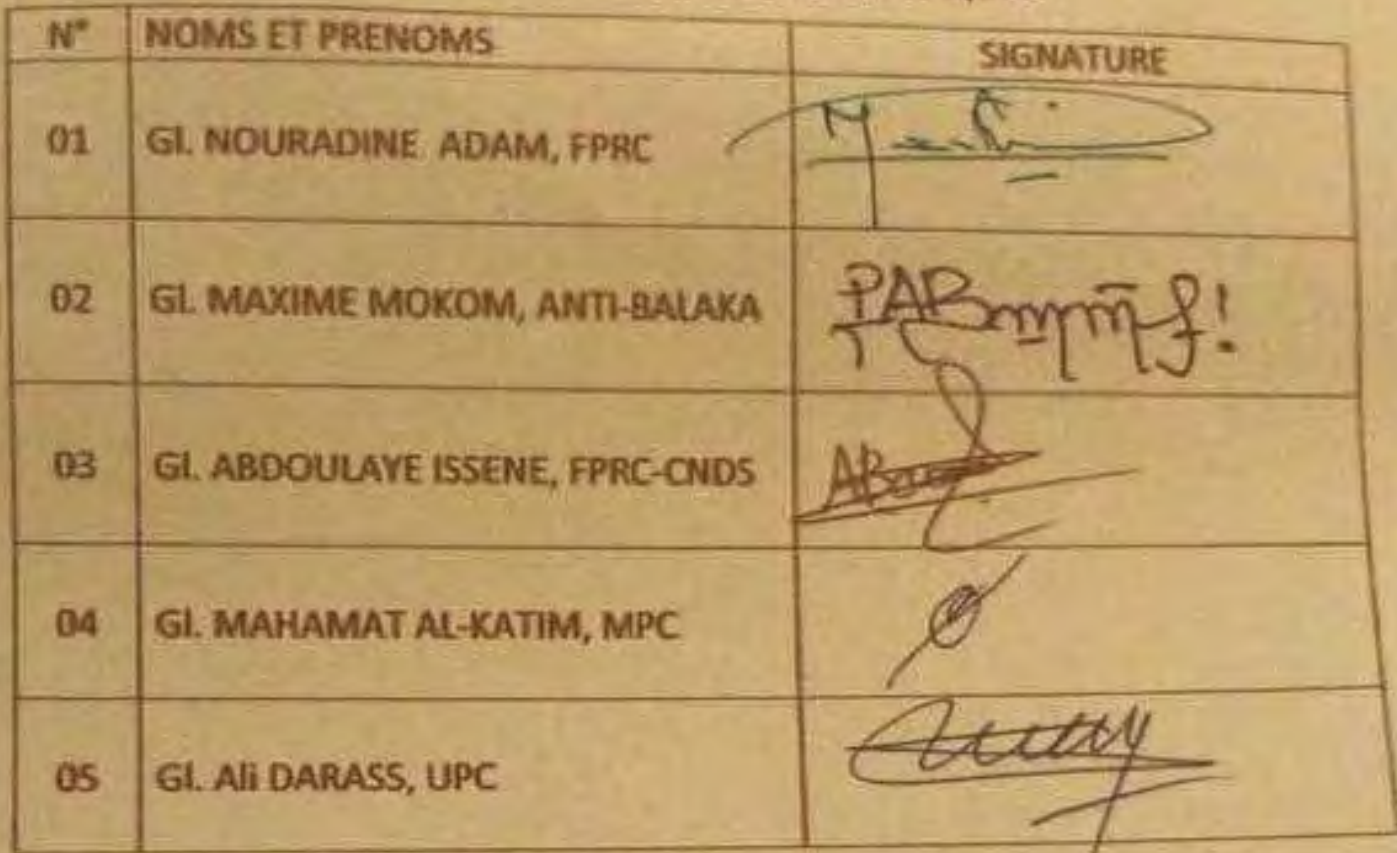 N° NOMS ET PRENOMS SIGNATURE
01 Gl. NOURADINE ADAM, FPRC
02 Gl. MAXIME MOKOM, ANTI-BALAKA
03 Gl. ABDOULAYE ISSENE, FPRC-CNDS
04 Gl. MAHAMAT AL-KATIM, MPC
05 Gl. Ali DARASS, UPC